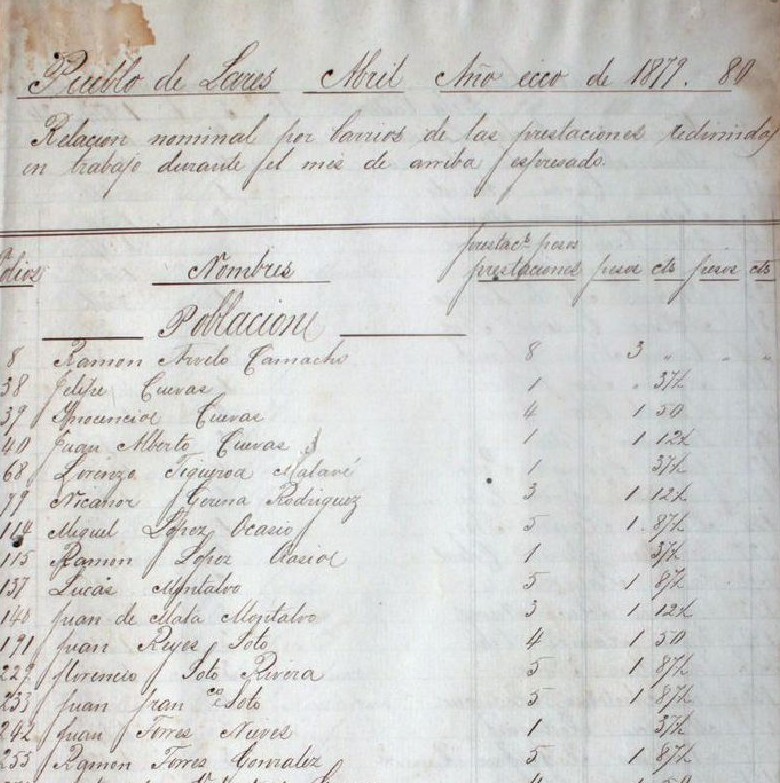 Pueblo de Lares Abril Año ecco de 1879. 80
Relacion nominal por barrios de las prestaciones redimidas
en trabajo durante el mes de arriba espresado.
prestac.s pesos
Nombres prestaciones pesos cts pesos cts
Poblacion
8 Ramon Arvelo Camacho 8 3 " " "
38 Felipe Cuevas 1 " 37½
39 Inocencio Cuevas 4 1 50
40 Juan Alberto Cuevas 1 1 12½
68 Lorenzo Figueroa Malavé 1 37½
79 Nicanor Gerena Rodriguez 3 1 12½
114 Miguel Lopez Ocasio 5 1 87½
115 Ramon Lopez Ocasio 1 37½
137 Lucas Montalvo 5 1 87½
140 Juan de Mata Montalvo 3 1 12½
191 Juan Reyes Soto 4 1 50
229 Florencio Soto Rivera 5 1 87½
233 Juan Fran.co Soto 5 1 87½
242 Juan Torres Nieves 1 37½
255 Ramon Torres Gonzalez 5 1 87½